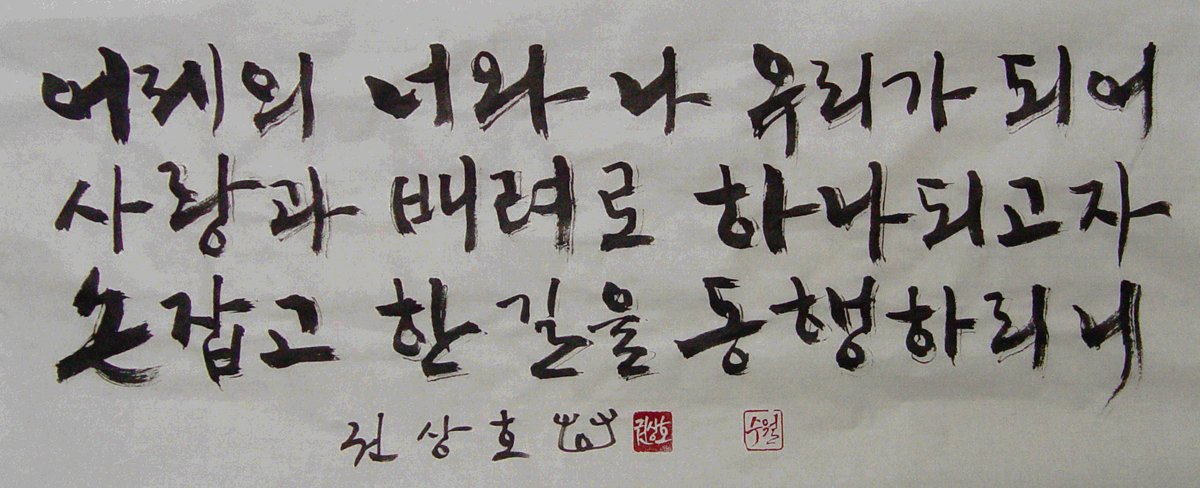 어제의 너와 나 우리가 되어
사랑과 배려로 하나되고자
손잡고 한 길을 동행하리니
권상호
권상호
수월